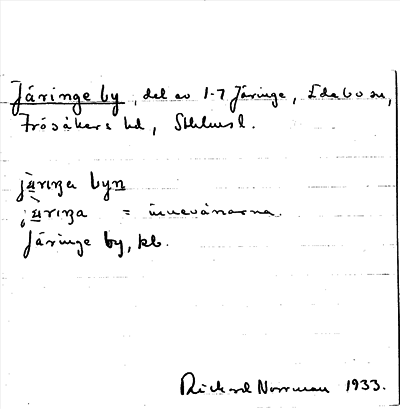 Järinge by, del av 1-7 Järinge, Edebo sn,
Frösåkers hd, Sthlmsl.
jä̀rɪŋa byn
jä̀rɪŋa = innevånarna.
Järinge by, kb.
Rickard Norrman 1933.